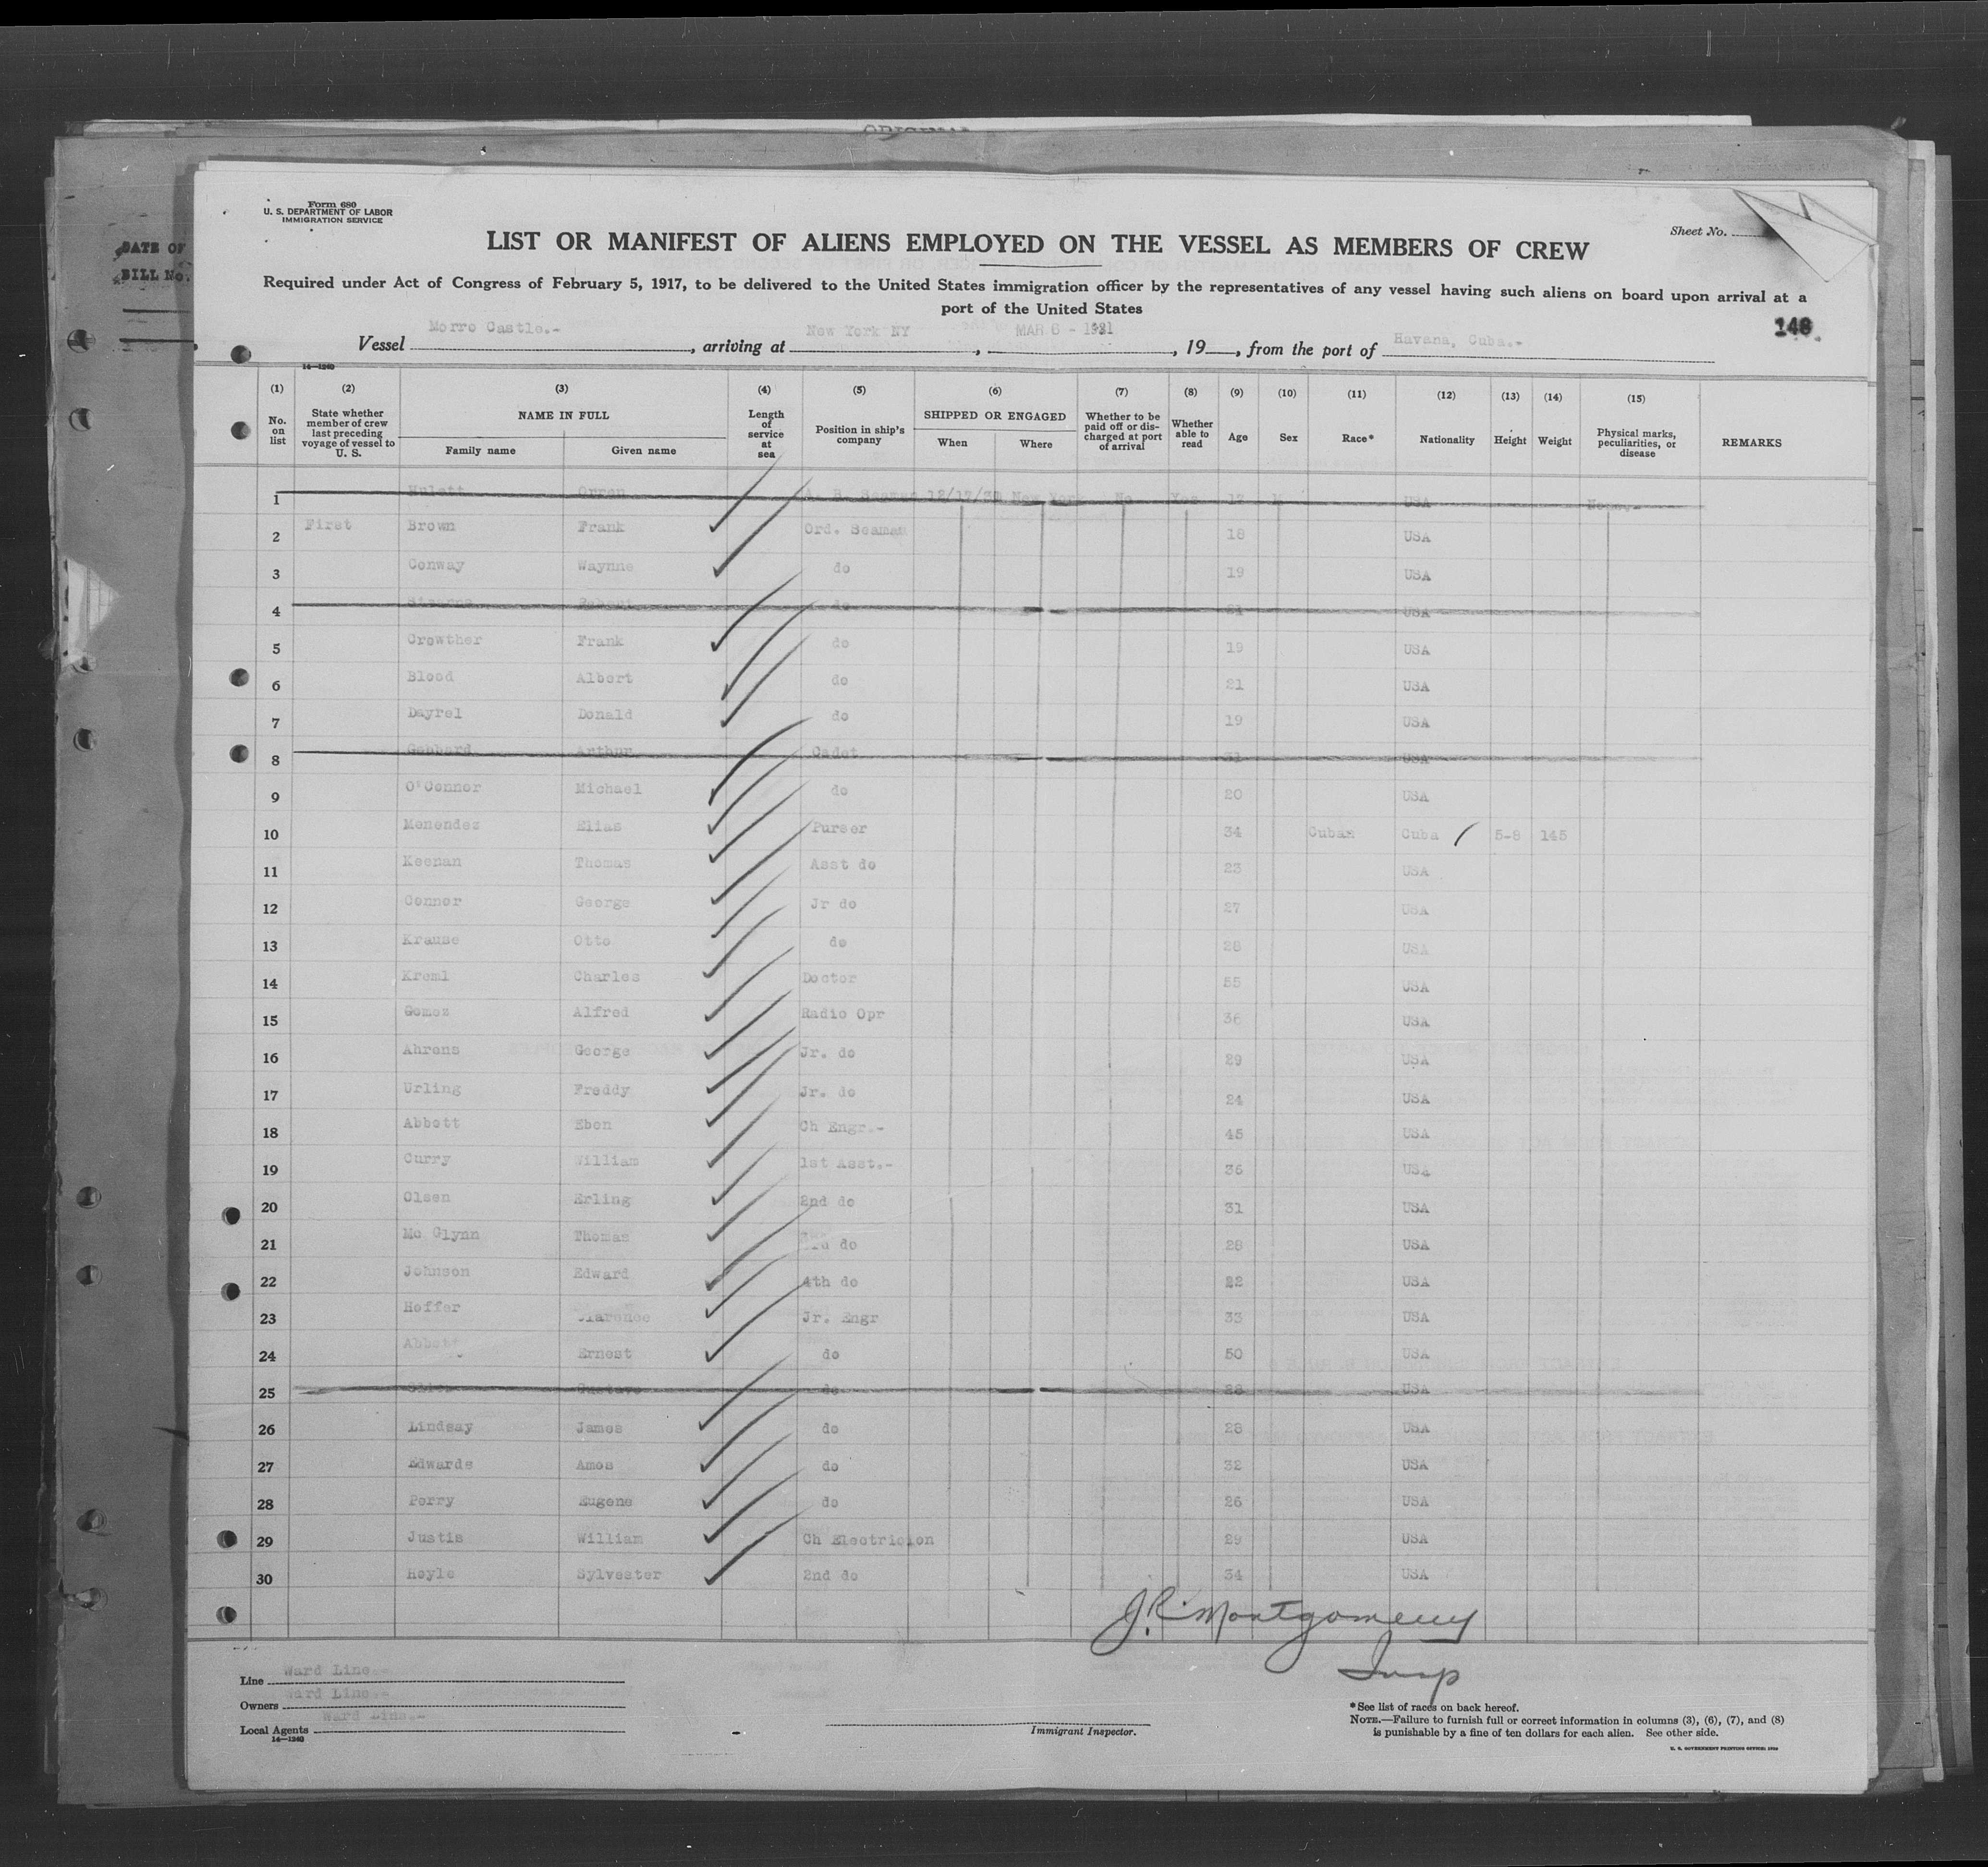 ORIGINAL
DATE OF
BILL No.
Form 680
U. S. DEPARTMENT OF LABOR
IMMIGRATION SERVICE
Sheet No.
LIST OR MANIFEST OF ALIENS EMPLOYED ON THE VESSEL AS MEMBERS OF CREW
Required under Act of Congress of February 5, 1917, to be delivered to the United States immigration officer by the representatives of any vessel having such aliens on board upon arrival at a
port of the United States
148
Vessel Morro Castle.- , arriving at New York NY , MAR 6 - 1931 , 19 , from the port of Havana, Cuba.-
14—1240
(1) (2) (3) (4) (5) (6) (7) (8) (9) (10) (11) (12) (13) (14) (15)
No. on list State whether member of crew last preceding voyage of vessel to U. S. NAME IN FULL Family name Given name Length of service at sea Position in ship's company SHIPPED OR ENGAGED When Where Whether to be paid off or discharged at port of arrival Whether able to read Age Sex Race* Nationality Height Weight Physical marks, peculiarities, or disease REMARKS
1 Hulett Orren A. B. Seaman 12/17/30 New York No Yes M USA None.-
2 First Brown Frank Ord. Seaman 18 USA
3 Conway Waynne do 19 USA
4 do 21 USA
5 Crowther Frank do 19 USA
6 Blood Albert do 21 USA
7 Dayrel Donald do 19 USA
8 Gebhard Arthur Cadet 21 USA
9 O'Connor Michael do 20 USA
10 Menendez Elias Purser 34 Cuban Cuba 5-8 145
11 Keenan Thomas Asst do 23 USA
12 Connor George Jr do 27 USA
13 Krause Otto do 28 USA
14 Kreml Charles Doctor 55 USA
15 Gomez Alfred Radio Opr 36 USA
16 Ahrens George Jr. do 29 USA
17 Urling Freddy Jr. do 24 USA
18 Abbott Eben Ch Engr.- 45 USA
19 Curry William 1st Asst.- 36 USA
20 Olsen Erling 2nd do 31 USA
21 Mc Glynn Thomas 3rd do 28 USA
22 Johnson Edward 4th do 22 USA
23 Hoffer Clarence Jr. Engr 33 USA
24 Abbott Ernest do 50 USA
25 Gustave do 28 USA
26 Lindsay James do 28 USA
27 Edwards Amos do 32 USA
28 Perry Eugene do 26 USA
29 Justis William Ch Electricion 29 USA
30 Hoyle Sylvester 2nd do 34 USA
J. R. Montgomery
Insp
Line Ward Line.-
Owners Ward Line.-
Local Agents Ward Line.-
14—1240
Immigrant Inspector.
*See list of races on back hereof.
NOTE.—Failure to furnish full or correct information in columns (3), (6), (7), and (8)
is punishable by a fine of ten dollars for each alien. See other side.
U. S. GOVERNMENT PRINTING OFFICE: